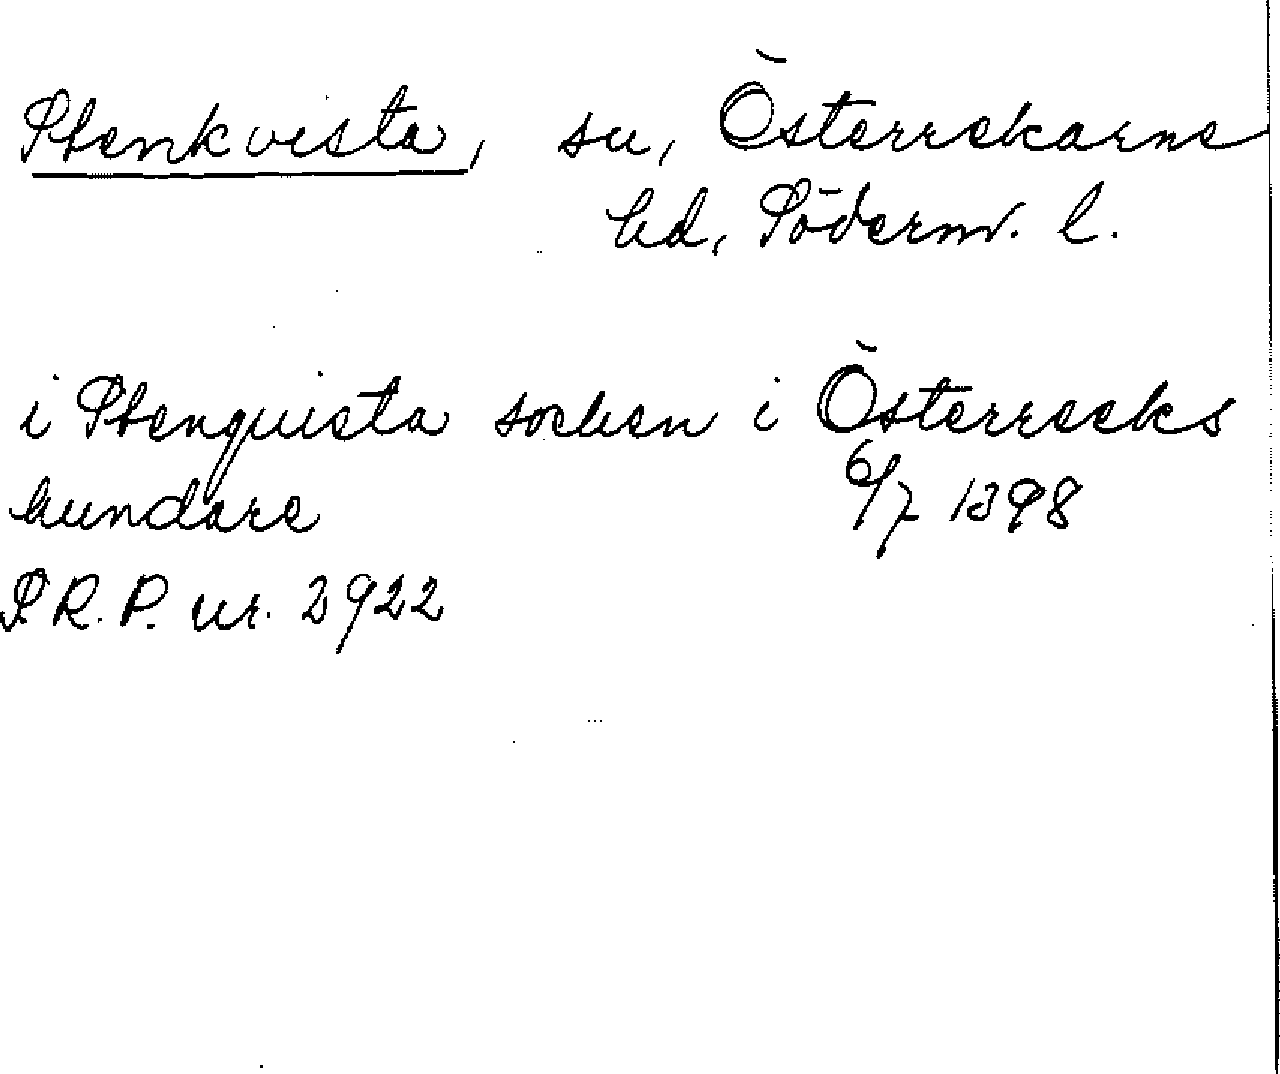 Stenkvista, sn, Österrekarne
hd, Söderm. l.
i Stenquista socken i Österreeks
hundare 6/7 1398
S.R.P. nr. 2922